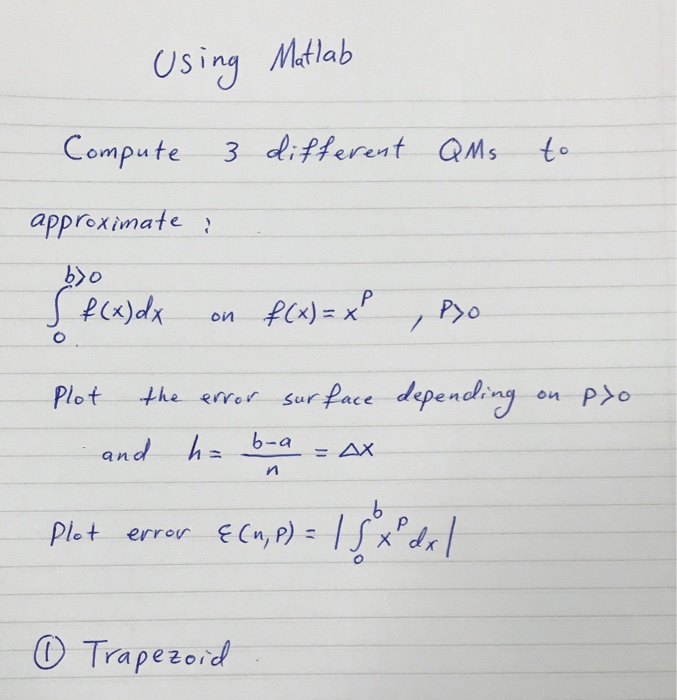 Using Matlab
Compute 3 different QMs to
approximate :
∫₀^{b>0} f(x)dx on f(x) = x^p , P>0
Plot the error surface depending on p>0
and h = (b-a)/n = Δx
Plot error ε(n,p) = |∫₀^b x^p dx|
① Trapezoid